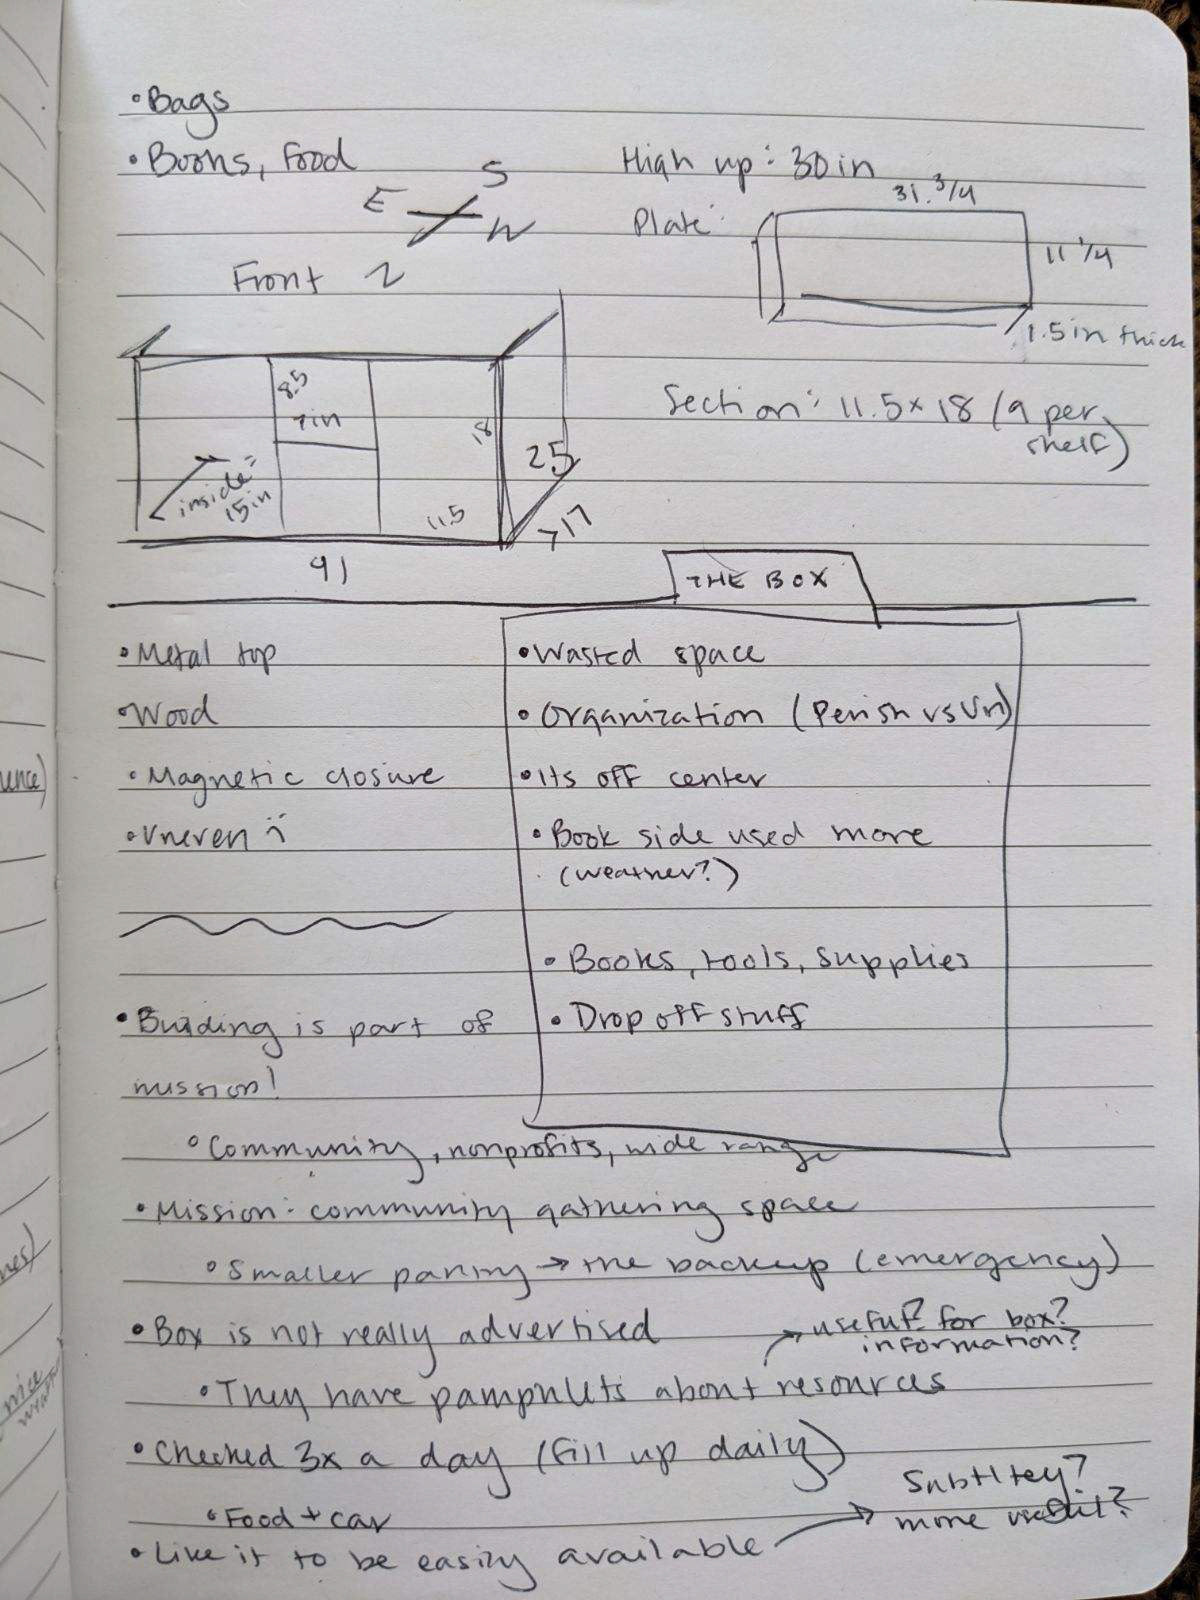 •Bags
•Books, Food
High up: 30in
E S
W
Plate:
31.3/4
11 1/4
1.5in thick
Front
8.5
7in
18
25
inside=
15in
11.5
717
91
Section: 11.5×18 (9 per
shelf)
THE BOX
•Metal top
•Wood
•Magnetic closure
•Uneven
•Wasted space
•Organization (Perish vs Un)
•Its off center
•Book side used more
(weather?)
•Books, tools, supplies
•Drop off stuff
•Building is part of
mission!
•Community, nonprofits, wide range
•Mission: community gathering space
•Smaller pantry → the backup (emergency)
•Box is not really advertised
→ useful? for box?
information?
•They have pamphlets about resources
•Checked 3x a day (fill up daily)
•Food + car
•Like it to be easily available
→ Subtltey?
more useful?
ence)
nes)